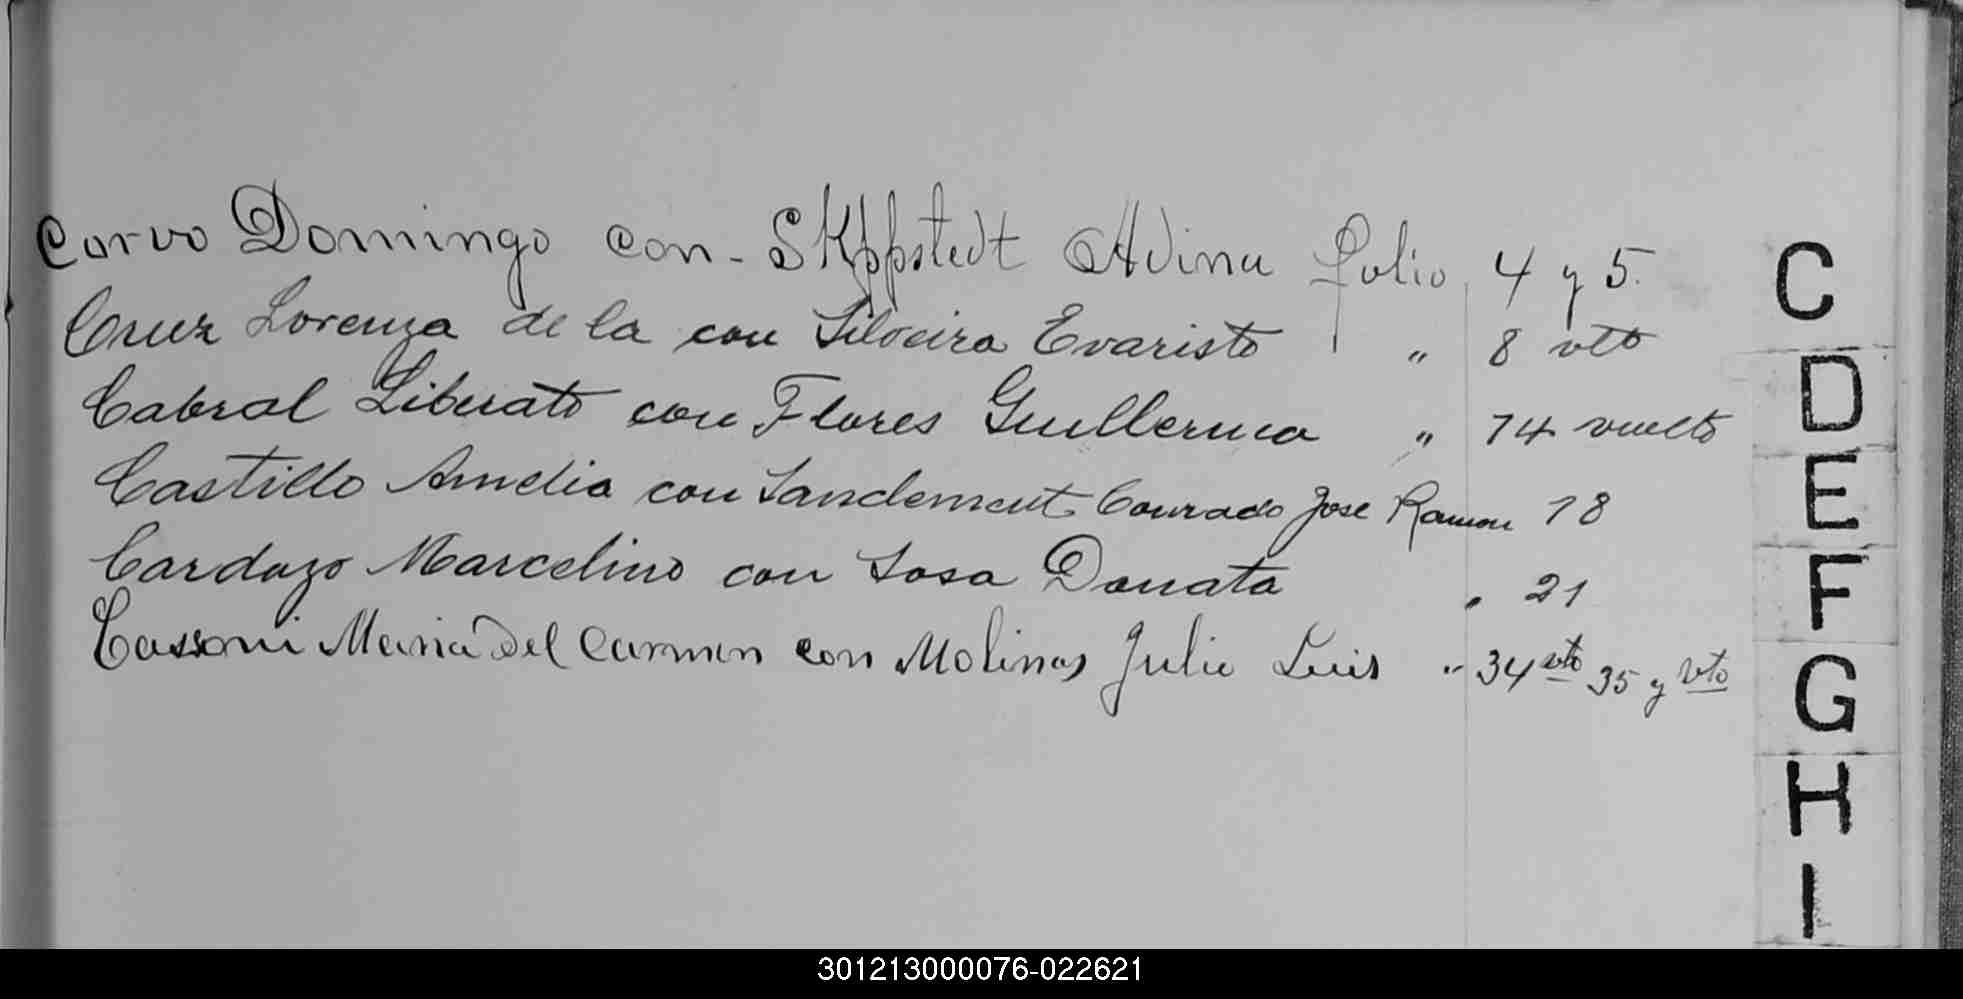 Corvo Domingo con - SKppstedt Adina folio 4 y 5.
Cruz Lorenza de la con Silveira Evaristo " 8 vto
Cabral Liberato con Flores Guillerma " 14 vuelto
Castillo Amelia con Sandement Conrado Jose Ramon 18
Cardozo Marcelino con Sosa Donata " 21
Cassoni Maria del Carmen con Molinas Julio Luis " 34 vto 35 y vto
C
D
E
F
G
H
I
301213000076-022621